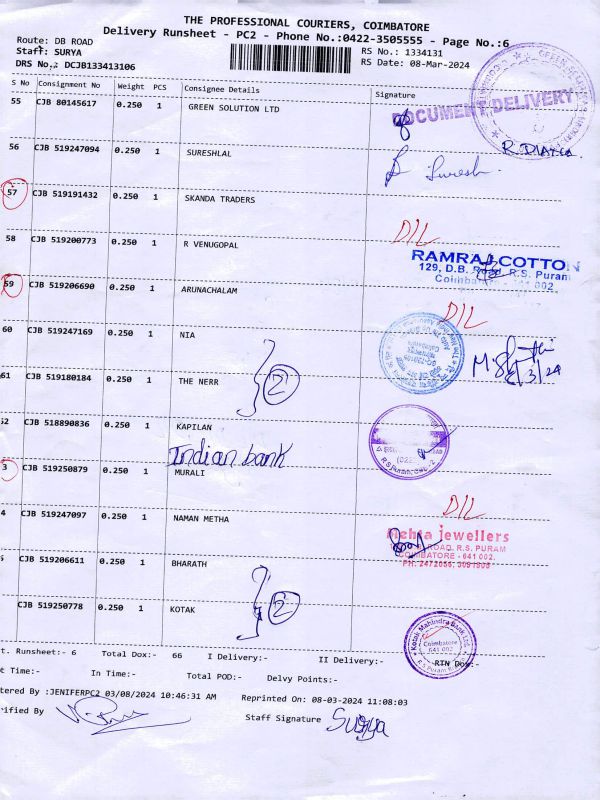 THE PROFESSIONAL COURIERS, COIMBATORE
Delivery Runsheet - PC2 - Phone No.:0422-3505555 - Page No.:6
Route: DB ROAD
Staff: SURYA
RS No.: 1334131
DRS No.: DCJB133413106
RS Date: 08-Mar-2024
S No Consignment No Weight PCS Consignee Details Signature
55 CJB 80145617 0.250 1 GREEN SOLUTION LTD
DOCUMENT DELIVERY
56 CJB 519247094 0.250 1 SURESHLAL
Suresh
57 CJB 519191432 0.250 1 SKANDA TRADERS
D/L
58 CJB 519200773 0.250 1 R VENUGOPAL
RAMRAJ COTTON
129, D.B. Road, R.S. Puram
Coimbatore - 641 002
59 CJB 519206690 0.250 1 ARUNACHALAM
D/L
60 CJB 519247169 0.250 1 NIA
2
61 CJB 519180184 0.250 1 THE NERR
52 CJB 518890836 0.250 1 KAPILAN
Indian bank
3 CJB 519250879 0.250 1 MURALI
D/L
4 CJB 519247097 0.250 1 NAMAN METHA
Mehta jewellers
ROAD, R.S. PURAM
COIMBATORE - 641 002.
PH: 2472056, 3091808
CJB 519206611 0.250 1 BHARATH
2
CJB 519250778 0.250 1 KOTAK
Kotak Mahindra Bank Ltd.
Coimbatore
641 002
R.S Puram
t. Runsheet:- 6 Total Dox:- 66 I Delivery:- II Delivery:- RTN Dox:-
t Time:- In Time:- Total POD:- Delvy Points:-
tered By :JENIFERPC2 03/08/2024 10:46:31 AM Reprinted On: 08-03-2024 11:08:03
rified By Staff Signature Surya